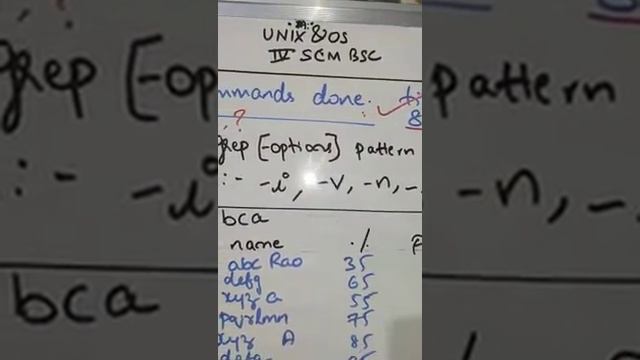 UNIX & OS
IV SEM BSC
mmands done.
?
grep [-options] pattern
:- -i, -v, -n, -
bca
name %
abc Rao 35
defg 65
xyz a 55
pqrlmn 75
xyz A 85